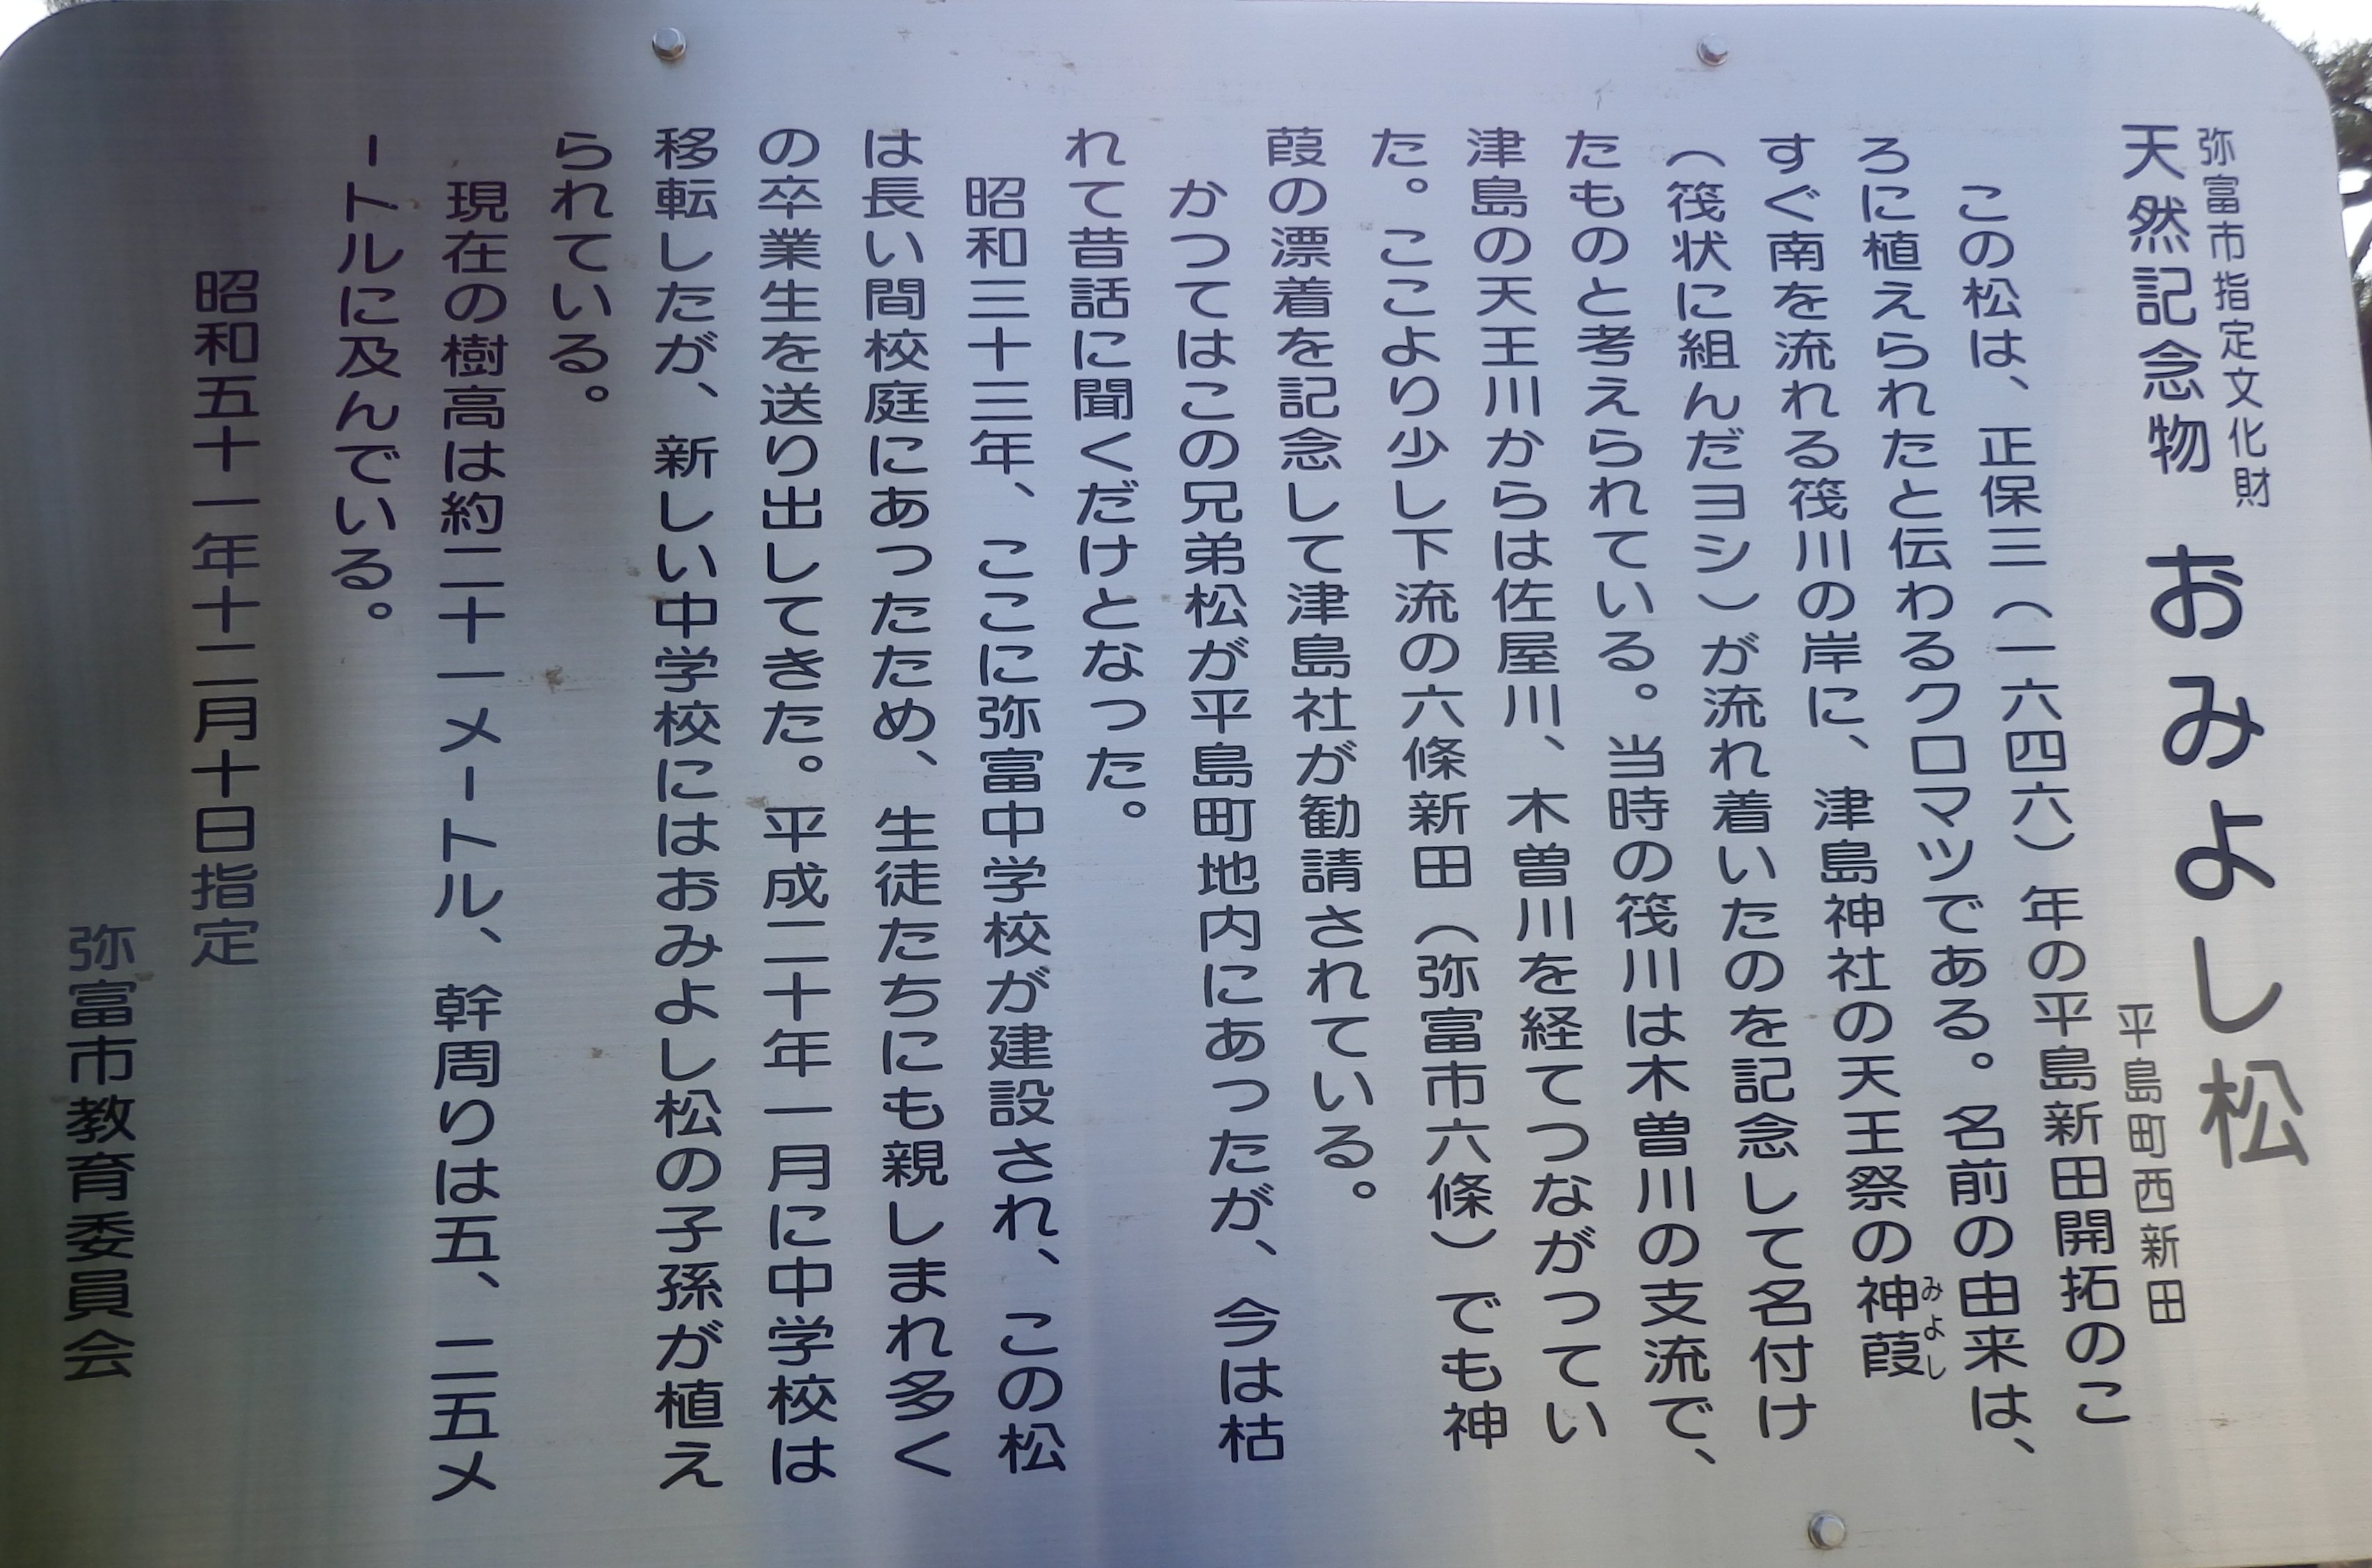 弥富市指定文化財
天然記念物 おみよし松
平島町西新田
この松は、正保三(一六四六)年の平島新田開拓のこ
ろに植えられたと伝わるクロマツである。名前の由来は、
すぐ南を流れる筏川の岸に、津島神社の天王祭の神葭
みよし
(筏状に組んだヨシ)が流れ着いたのを記念して名付け
たものと考えられている。当時の筏川は木曽川の支流で、
津島の天王川からは佐屋川、木曽川を経てつながってい
た。ここより少し下流の六條新田(弥富市六條)でも神
葭の漂着を記念して津島社が勧請されている。
かつてはこの兄弟松が平島町地内にあったが、今は枯
れて昔話に聞くだけとなった。
昭和三十三年、ここに弥富中学校が建設され、この松
は長い間校庭にあったため、生徒たちにも親しまれ多く
の卒業生を送り出してきた。平成二十年一月に中学校は
移転したが、新しい中学校にはおみよし松の子孫が植え
られている。
現在の樹高は約二十一メートル、幹周りは五、二五メ
ートルに及んでいる。
昭和五十一年十二月十日指定
弥富市教育委員会